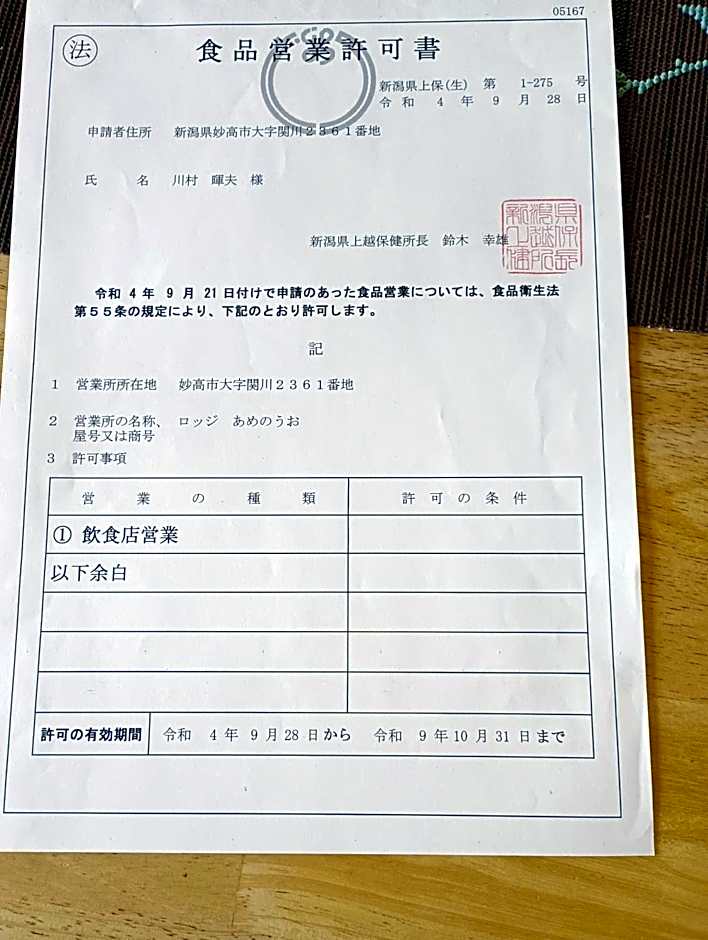 05167
法
食品営業許可書
新潟県上保(生) 第 1-275 号
令和 4 年 9 月 28 日
申請者住所 新潟県妙高市大字関川2361番地
氏 名 川村 暉夫 様
新潟県上越保健所長 鈴木 幸雄
令和 4 年 9 月 21 日付けで申請のあった食品営業については、食品衛生法
第55条の規定により、下記のとおり許可します。
記
1 営業所所在地 妙高市大字関川2361番地
2 営業所の名称、 ロッジ あめのうお
屋号又は商号
3 許可事項
営業の種類 許可の条件
① 飲食店営業
以下余白
許可の有効期間 令和 4 年 9 月 28 日から 令和 9 年 10 月 31 日まで